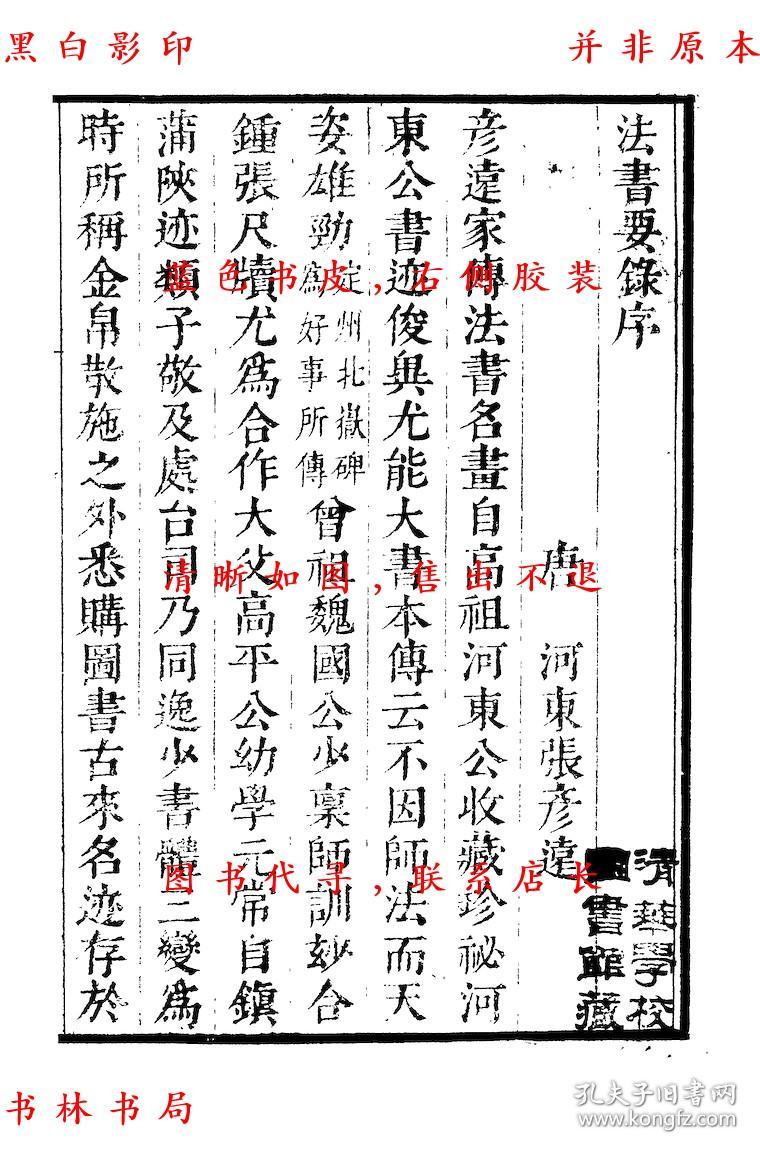 黑白影印
并非原本
法書要錄序
唐 河東張彥遠
彥遠家傳法書名畫自高祖河東公收藏珍祕河
東公書迹俊異尤能大書本傳云不因師法而天
姿雄勁定州北嶽碑為好事所傳曾祖魏國公少稟師訓玅合
鍾張尺牘尤爲合作大父高平公幼學元常自鎮
蒲陝迹類子敬及處台司乃同逸少書體三變爲
時所稱金帛散施之外悉購圖書古來名迹存於
清華學校
圖書館藏
蓝色书皮,右侧胶装
清晰如图,售出不退
图书代寻,联系店长
书林书局
孔夫子旧书网
www.kongfz.com